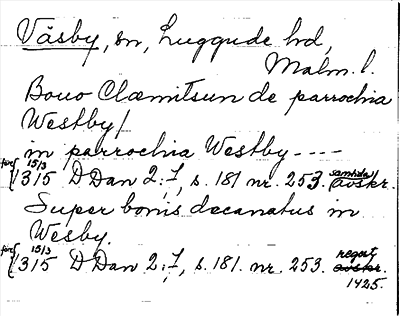 Väsby, sn, Luggude hd,
Malm. l.
Bouo Clæmitsun de parrochia
Westby/
in parrochia Westby ----
(pref 15/3 1315 D Dan 2:7, s. 181 nr. 253. samtida avskr.
Super bonis decanatus in
Wesby.
(pref 15/3 1315 D Dan 2:7, s. 181. nr. 253. regest avskr.
1425.